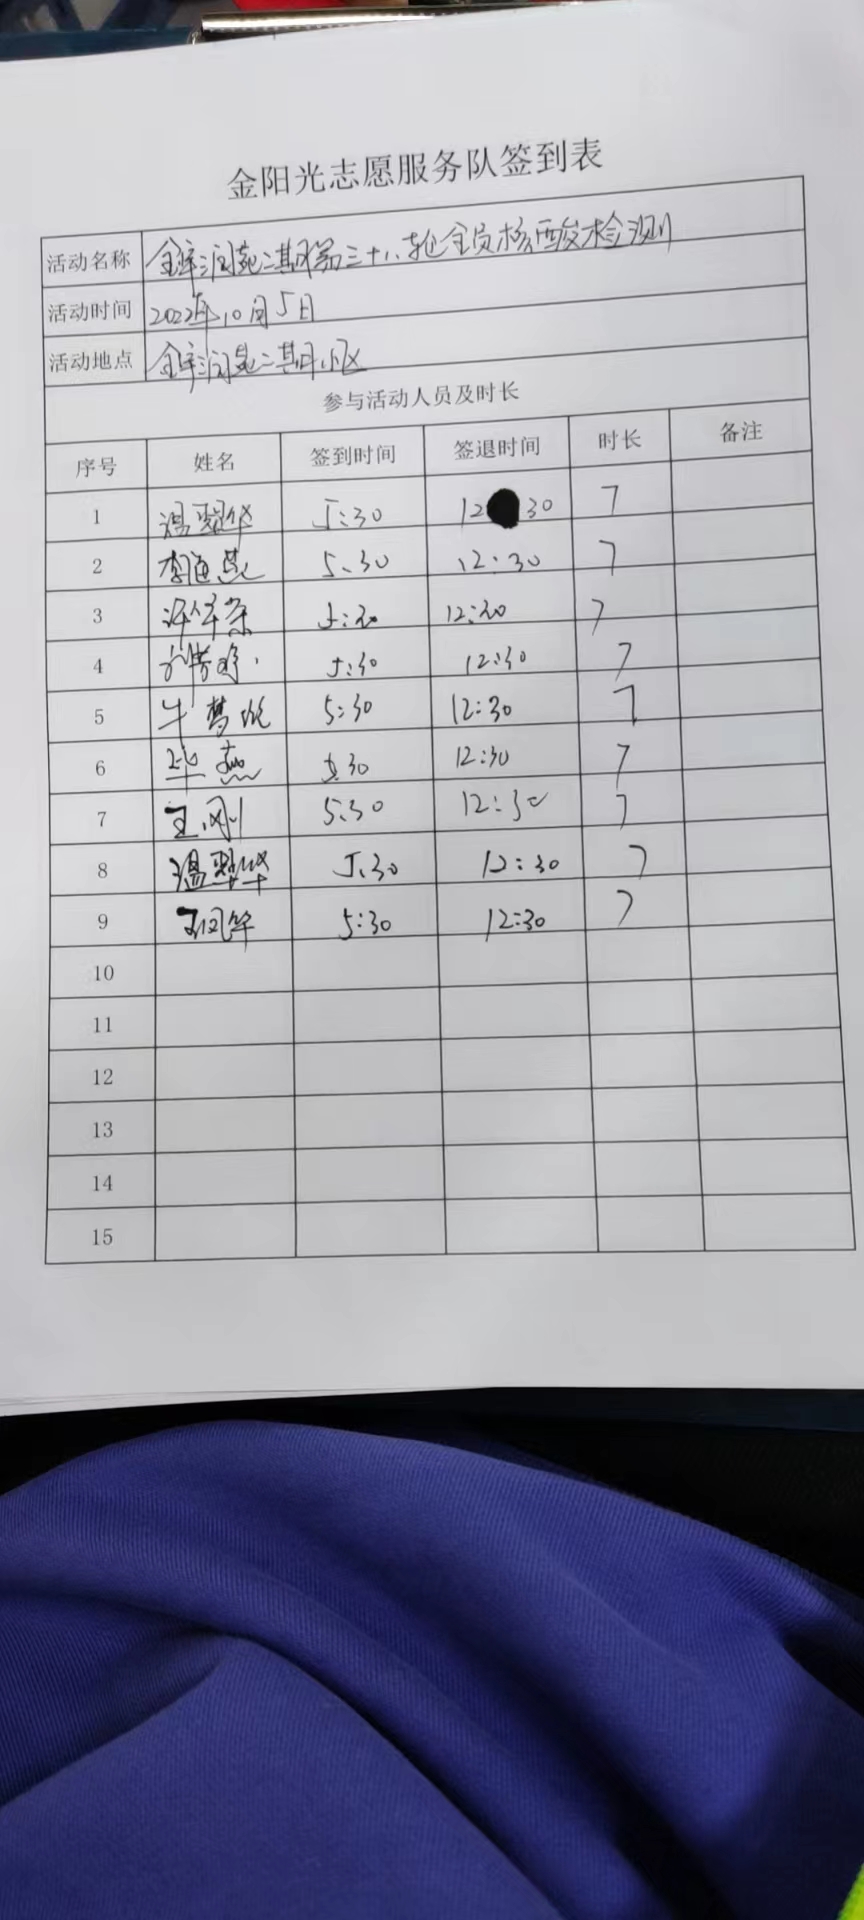 金阳光志愿服务队签到表
活动名称 金辉润苑二期第三十八轮全员核酸检测
活动时间 2022年10月5日
活动地点 金辉润苑二期小区
参与活动人员及时长
序号 姓名 签到时间 签退时间 时长 备注
1 5:30 12 30 7
2 5:30 12:30 7
3 5:30 12:30 7
4 5:30 12:30 7
5 牛梦 5:30 12:30 7
6 华燕 5:30 12:30 7
7 王刚 5:30 12:30 7
8 5:30 12:30 7
9 王凤华 5:30 12:30 7
10
11
12
13
14
15